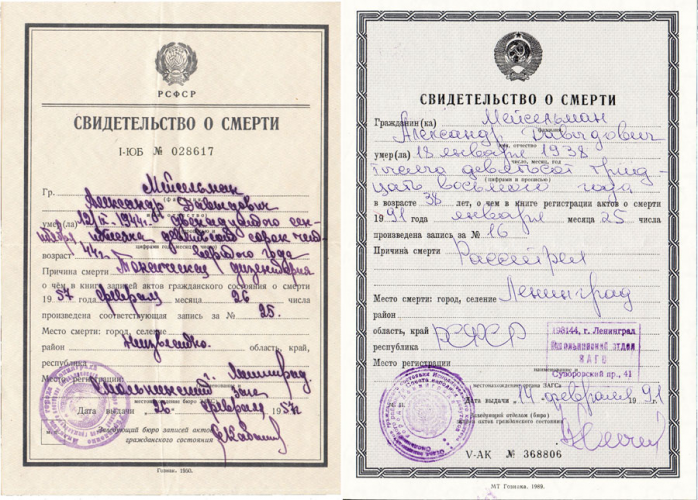 РСФСР
СВИДЕТЕЛЬСТВО О СМЕРТИ
I-ЮБ № 028617
Гр. Мейсельман
Александр Давидович
умер(ла) 12/IX-1944г. двенадцатого сен-
тября тысяча девятьсот сорок чет-
вертого года
возраст 44г.
Причина смерти Токсическая дизентерия
о чём в книге записей актов гражданского состояния о смерти
1957 года февраля месяца 26 числа
произведена соответствующая запись за № 25.
Место смерти: город, селение
район Неизвестно. область, край,
республика
Место регистрации г. Ленинград
Смольнинский Загс
Дата выдачи „26" февраля 1957г.
Заведующий бюро записей актов
гражданского состояния
Гознак. 1950.
СВИДЕТЕЛЬСТВО О СМЕРТИ
Гражданин(ка) Мейсельман
фамилия
Александр Давидович
имя, отчество
умер(ла) 18 января 1938
число, месяц, год
тысяча девятьсот трид-
(цифрами и прописью)
цать восьмого года
в возрасте 38 лет, о чем в книге регистрации актов о смерти
1991 года января месяца 25 числа
произведена запись за № 16
Причина смерти Расстрел
Место смерти: город, селение Ленинград
район
область, край
республика РСФСР
193144, г. Ленинград
Смольнинский отдел
ЗАГС
Суворовский пр., 41
Место регистрации
местонахождение органа ЗАГСа
Дата выдачи 14 февраля 1991
Заведующий отделом (бюро)
записи актов гражданского состояния
V-АК № 368806
МТ Гознака. 1989.